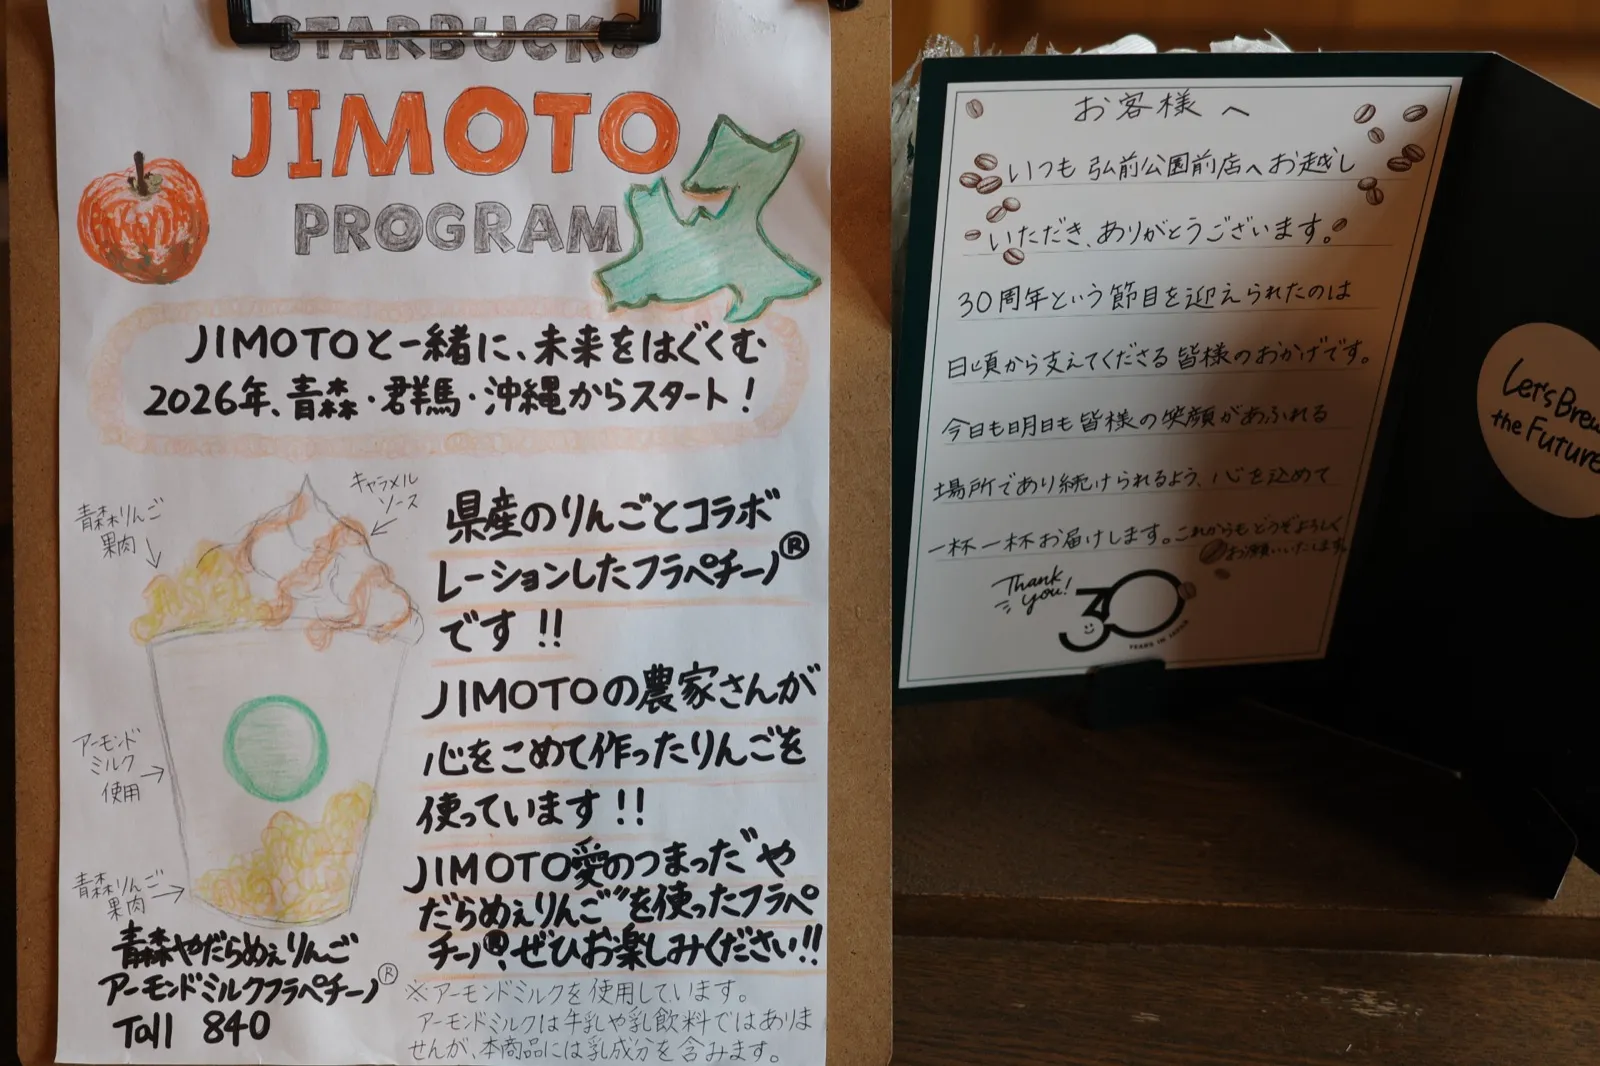 STARBUCKS
JIMOTO
PROGRAM
JIMOTOと一緒に、未来をはぐくむ
2026年、青森・群馬・沖縄からスタート！
キャラメル
ソース
青森りんご
果肉
アーモンド
ミルク
使用
青森りんご
果肉
青森やだらめぇりんご
アーモンドミルクフラペチーノ®
Tall 840
県産のりんごとコラボ
レーションしたフラペチーノ®
です!!
JIMOTOの農家さんが
心をこめて作ったりんごを
使っています!!
JIMOTO愛のつまった"や
だらめぇりんご"を使ったフラペ
チーノ®、ぜひお楽しみください!!
※アーモンドミルクを使用しています。
アーモンドミルクは牛乳や乳飲料ではありま
せんが、本商品には乳成分を含みます。
お客様へ
いつも弘前公園前店へお越し
いただき、ありがとうございます。
30周年という節目を迎えられたのは
日頃から支えてくださる皆様のおかげです。
今日も明日も皆様の笑顔があふれる
場所であり続けられるよう、心を込めて
一杯一杯お届けします。これからもどうぞよろしく
お願いいたします。
Thank
you!
30
YEARS IN JAPAN
Let's Brew
the Future